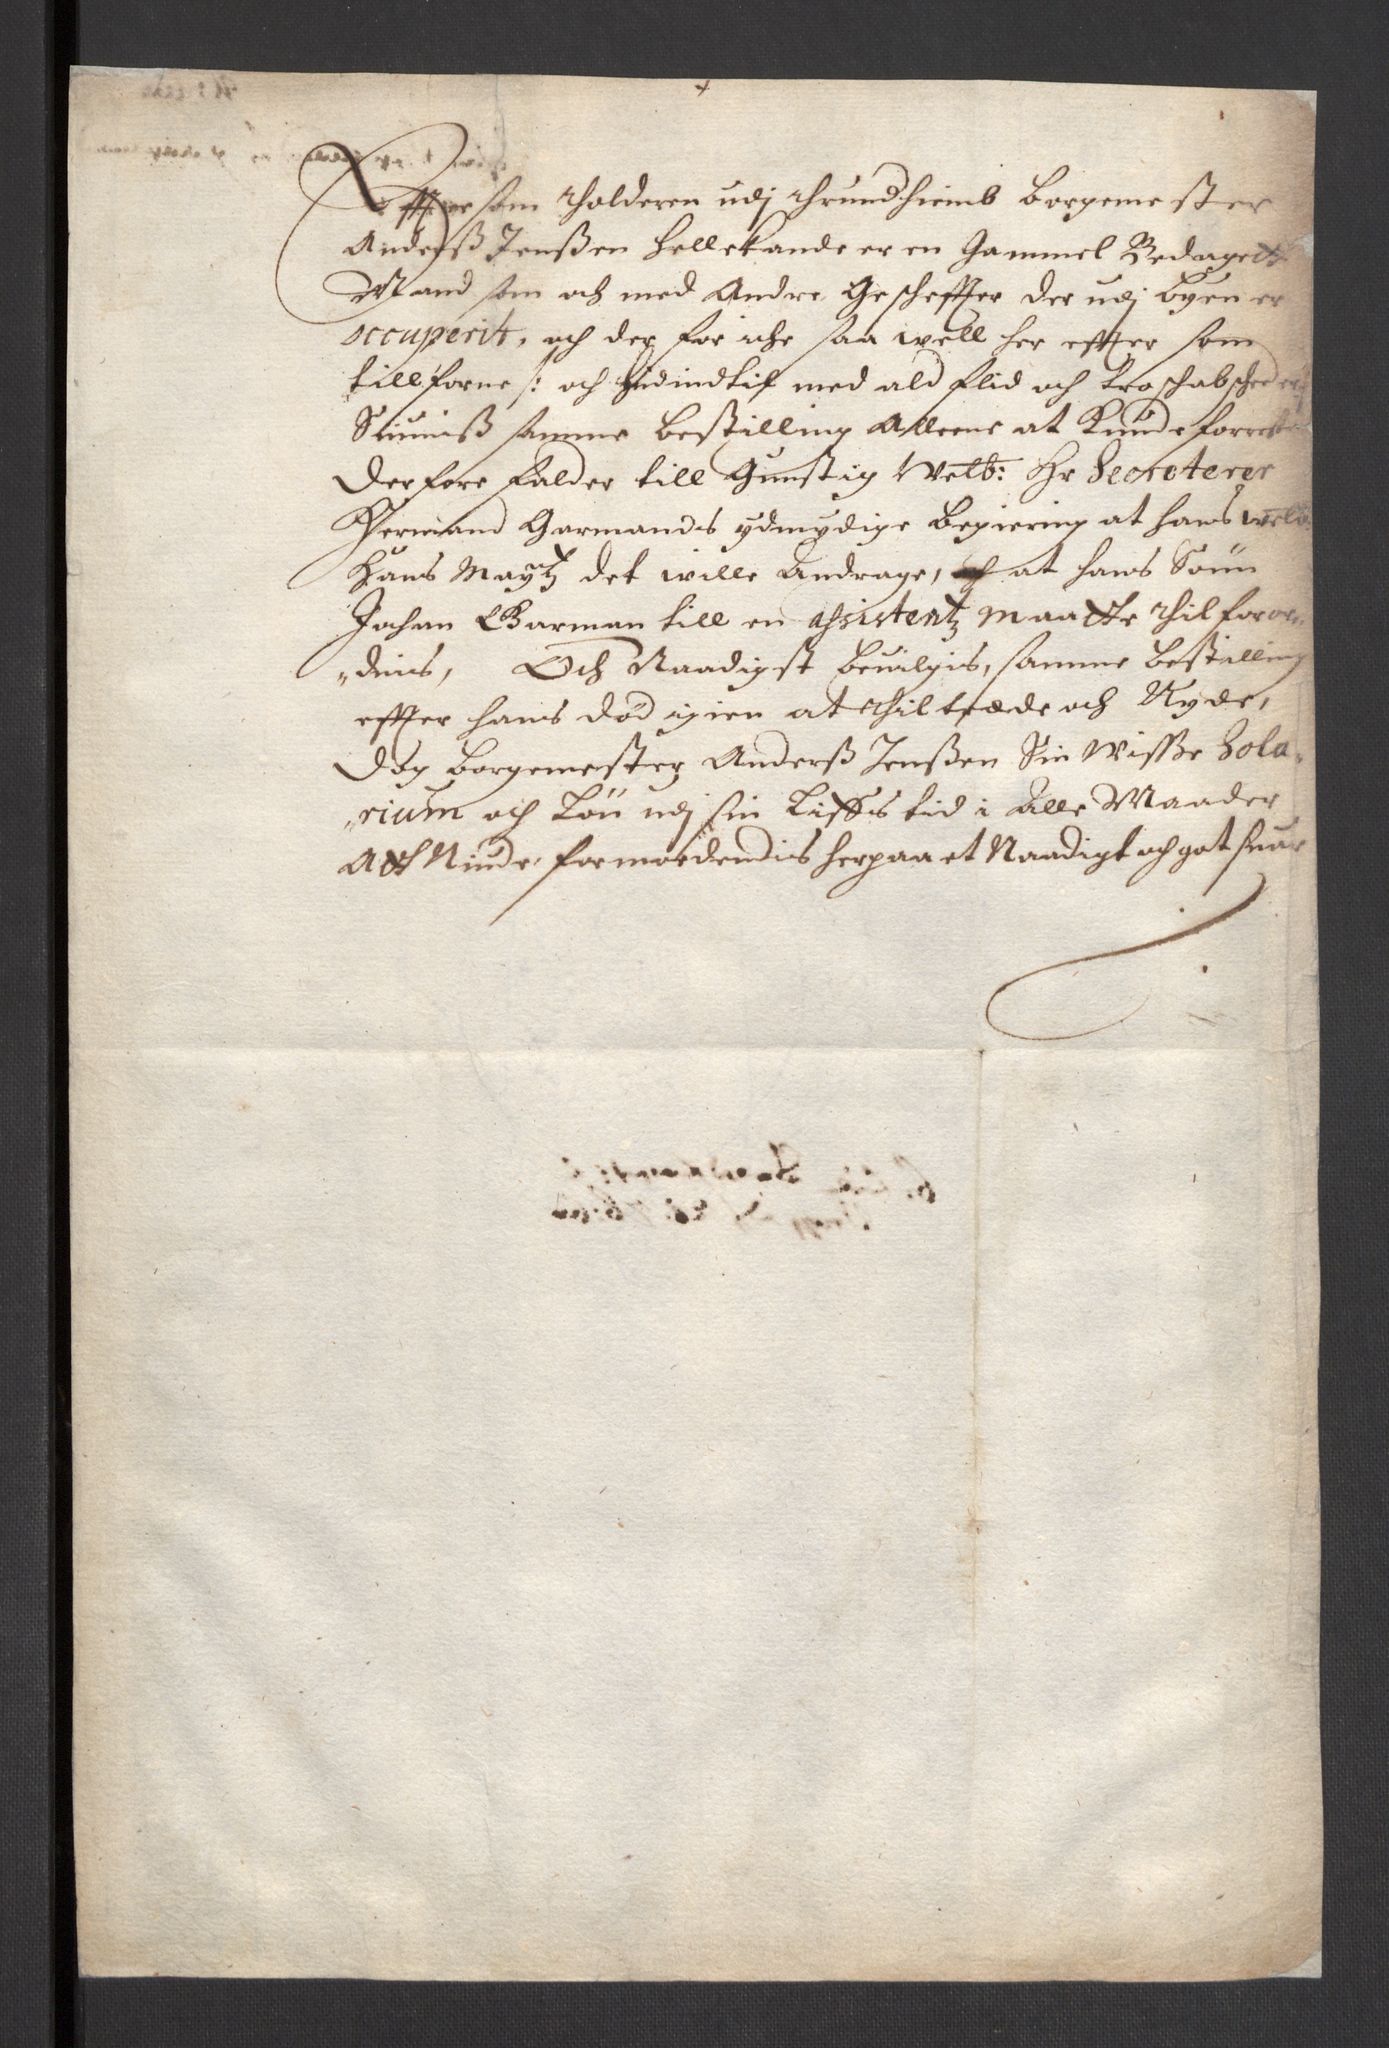 Effter som Tholderen udj Thrundhiemb Borgemester
Anderß Jenßen Hellekande er en Gammel Bedaget
Mand som och med Andre Gescheffter der udj Byen er
occuperit, och der for iche saa well her effter som
tillforne /: och indtil med ald flid och troschab scheed er :/
samme Bestilling Alleene at Kunde forrette
Derfore falder till Gunstig Welb: Hr Secreterer
Hermand Garmands ydmydige Begiering at hans Welb.
Hans Maytz det wille Andrage, at hans Sönn
Johan Garman till en assistentz maatte Thilforor„
„dnis, Och Naadigst beuilgis, samme Bestilling
effter hans død igien at Thiltræde och Nyde,
Dog Borgemester Anderß Jenßen Sin Wisse Sola„
„rium och Lön udj sin Liffs tid i Alle Maader
Att Niude, formoedendis herpaa et Naadigt och got suar